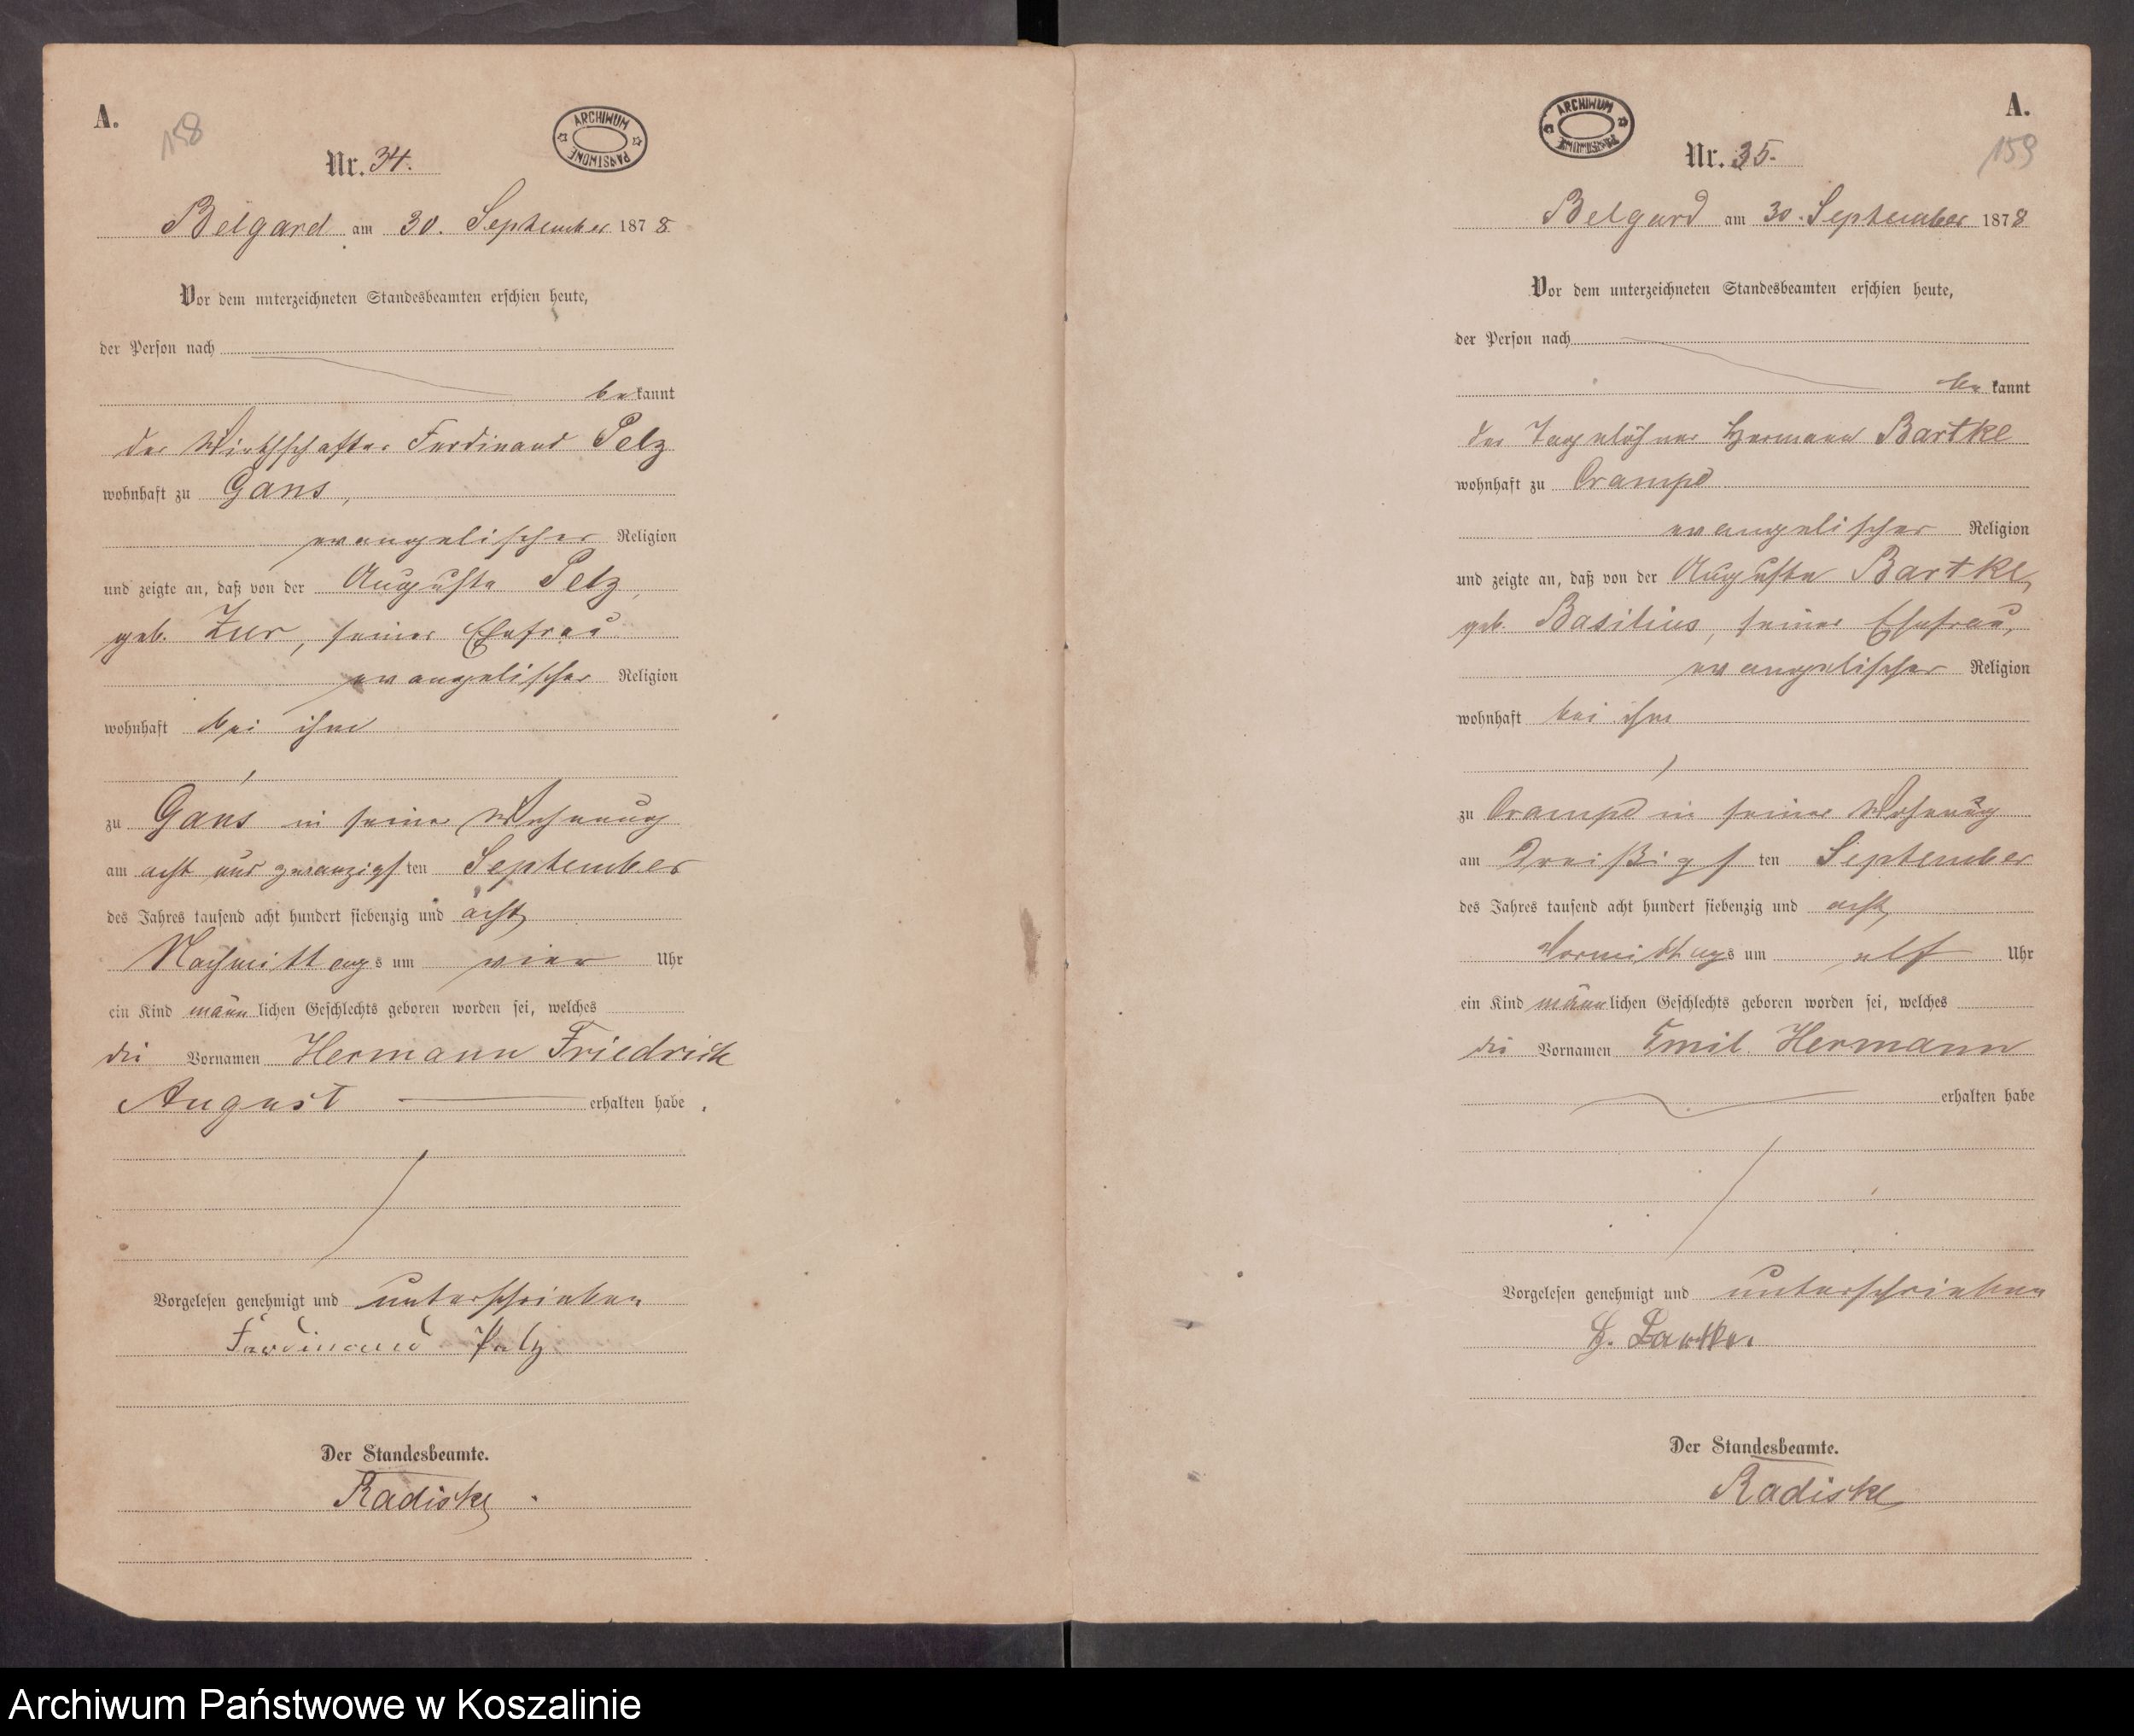 A.
158
ARCHIWUM PAŃSTWOWE
Nr. 34.
Belgard am 30. September 1878
Vor dem unterzeichneten Standesbeamten erschien heute,
der Person nach
bekannt
der Wirthschafter Ferdinand Pelz
wohnhaft zu Gans,
evangelischer Religion
und zeigte an, daß von der Auguste Pelz,
geb. Zur, seiner Ehefrau
evangelischer Religion
wohnhaft bei ihm
zu Gans in seiner Wohnung
am acht und zwanzigsten September
des Jahres tausend acht hundert siebenzig und acht
Nachmittags um vier Uhr
ein Kind männlichen Geschlechts geboren worden sei, welches
die Vornamen Hermann Friedrich
August erhalten habe.
Vorgelesen genehmigt und unterschrieben
Ferdinand Pelz
Der Standesbeamte.
Radiske.
A.
159
ARCHIWUM PAŃSTWOWE
Nr. 35.
Belgard am 30. September 1878
Vor dem unterzeichneten Standesbeamten erschien heute,
der Person nach
bekannt
der Tagelöhner Hermann Bartke
wohnhaft zu Crampe
evangelischer Religion
und zeigte an, daß von der Auguste Bartke,
geb. Basilius, seiner Ehefrau,
evangelischer Religion
wohnhaft bei ihm
zu Crampe in seiner Wohnung
am Dreißigsten September
des Jahres tausend acht hundert siebenzig und acht,
Vormittags um elf Uhr
ein Kind männlichen Geschlechts geboren worden sei, welches
die Vornamen Emil Hermann
erhalten habe
Vorgelesen genehmigt und unterschrieben
H. Bartke.
Der Standesbeamte.
Radiske
Archiwum Państwowe w Koszalinie